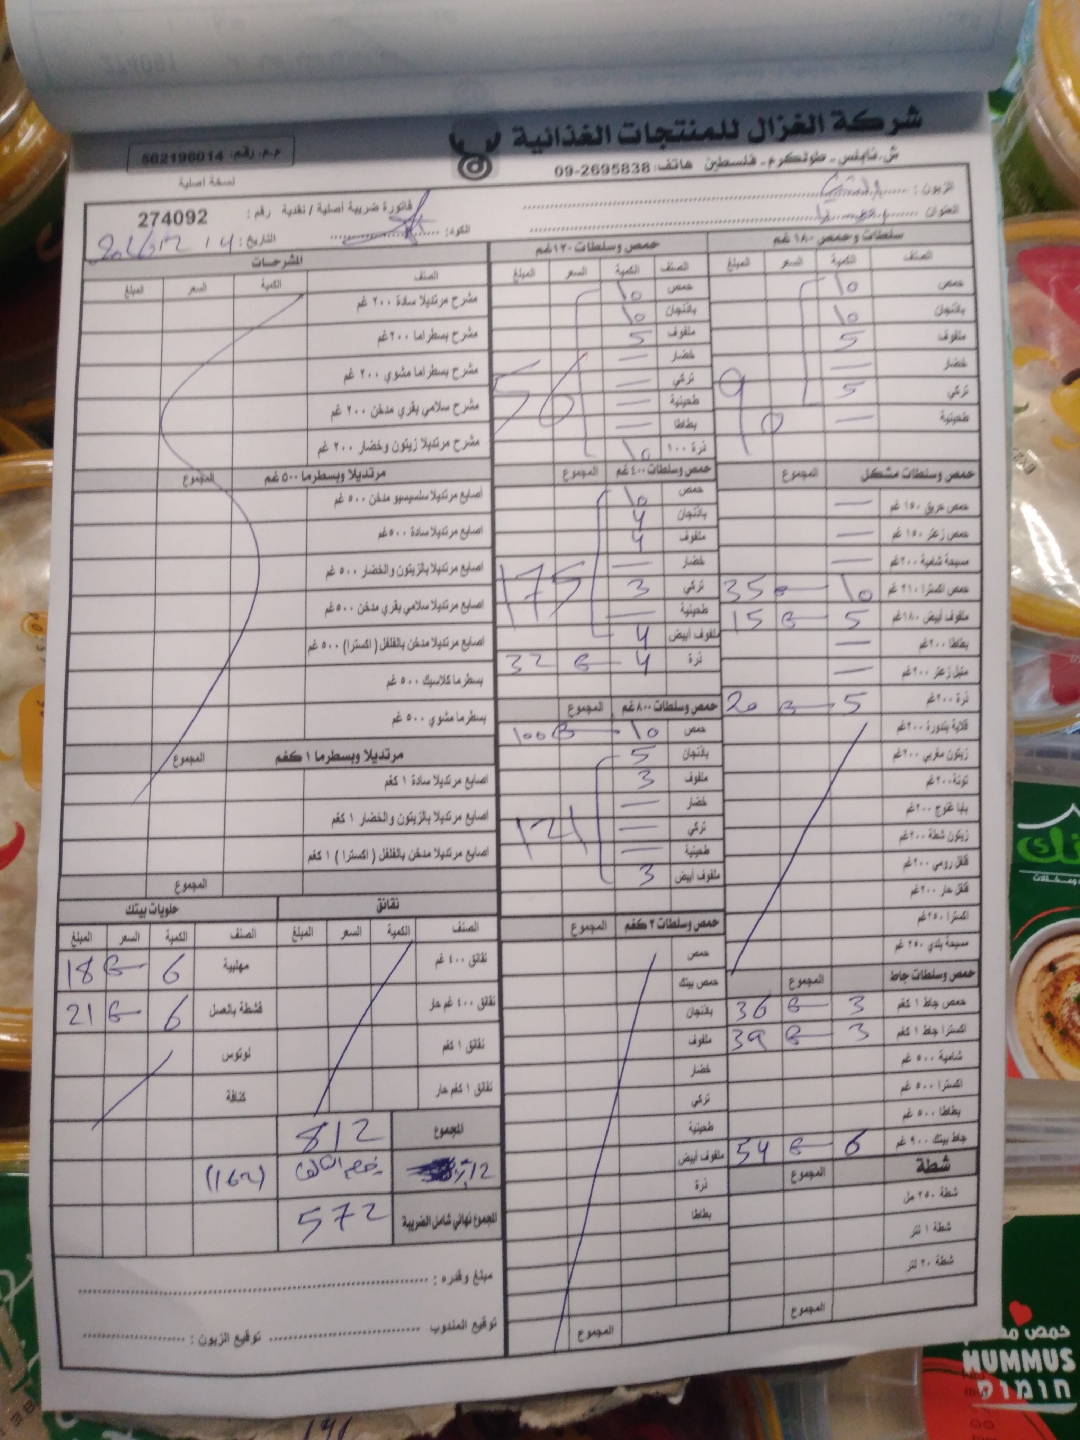 شركة الغزال للمنتجات الغذائية
ش. نابلس - طولكرم - فلسطين هاتف: 09-2695838
م.م. رقم: 562196014
نسخة أصلية
الزبون:
العنوان:
فاتورة ضريبة أصلية / نقدية رقم: 274092
الكود:
التاريخ:
سلطات وحمص ١٨٠ غم
الصنف الكمية السعر المبلغ
حمص 10
باذنجان 10
ملفوف 5
خضار —
تركي 5
طحينية —
90
حمص وسلطات مشكل المجموع
حمص حريق ١٥٠ غم —
حمص زعتر ١٥٠ غم —
مسبحة شامية ٢٠٠ غم —
حمص اكسترا ٢١٠ غم 10 35
ملفوف أبيض ١٨٠ غم 5 15
بطاطا ٢٠٠ غم —
متبل زعتر ٢٠٠ غم —
ذرة ٢٠٠ غم 5 20
قلاية بندورة ٢٠٠ غم
زيتون مغربي ٢٠٠ غم
تونة ٢٠٠ غم
بابا غنوج ٢٠٠ غم
زيتون شطة ٢٠٠ غم
فلفل رومي ٢٠٠ غم
فلفل حار ٢٠٠ غم
اكسترا ٢٥٠ غم
مسبحة بلدي ٢٥٠ غم
حمص وسلطات جاط المجموع
حمص جاط ١ كغم 3 36
اكسترا جاط ١ كغم 3 39
شامية ٥٠٠ غم
اكسترا ٥٠٠ غم
بطاطا ٥٠٠ غم
جاط بيتك ٩٠٠ غم 6 54
شطة المجموع
شطة ٢٥٠ مل
شطة ١ لتر
شطة ٢٠ لتر
المجموع
حمص وسلطات ١٢٠ غم
الصنف الكمية السعر المبلغ
حمص 10
باذنجان 10
ملفوف 5
خضار —
تركي —
طحينية —
بطاطا —
ذرة ١٠٠ 10
56
حمص وسلطات ٤٠٠ غم المجموع
حمص 10
باذنجان 4
ملفوف 4
خضار —
تركي 3
طحينية —
ملفوف أبيض 4
175
ذرة 4 32
حمص وسلطات ٨٠٠ غم المجموع
حمص 10 100
باذنجان 5
ملفوف 3
خضار —
تركي —
طحينية —
ملفوف أبيض 3
121
حمص وسلطات ٣ كغم المجموع
حمص
حمص بيتك
باذنجان
ملفوف
خضار
تركي
طحينية
ملفوف أبيض
ذرة
بطاطا
المجموع
المشرحات
الصنف الكمية السعر المبلغ
مشرح مرتديلا سادة ٢٠٠ غم
مشرح بسطراما ٢٠٠ غم
مشرح بسطراما مشوي ٢٠٠ غم
مشرح سلامي بقري مدخن ٢٠٠ غم
مشرح مرتديلا زيتون وخضار ٢٠٠ غم
مرتديلا وبسطرما ٥٠٠ غم المجموع
اصابع مرتديلا سلسيسيو مدخن ٥٠٠ غم
اصابع مرتديلا سادة ٥٠٠ غم
اصابع مرتديلا بالزيتون والخضار ٥٠٠ غم
اصابع مرتديلا سلامي بقري مدخن ٥٠٠ غم
اصابع مرتديلا مدخن بالفلفل (اكسترا) ٥٠٠ غم
بسطرما كلاسيك ٥٠٠ غم
بسطرما مشوي ٥٠٠ غم
مرتديلا وبسطرما ١ كغم المجموع
اصابع مرتديلا سادة ١ كغم
اصابع مرتديلا بالزيتون والخضار ١ كغم
اصابع مرتديلا مدخن بالفلفل (اكسترا) ١ كغم
المجموع
نقانق
الصنف الكمية السعر
نقانق ٤٠٠ غم
نقانق ٤٠٠ غم حار
نقانق ١ كغم
نقانق ١ كغم حار
حلويات بيتك
الصنف الكمية السعر المبلغ
مهلبية 6 18
قشطة بالعسل 6 21
لوتوس
كنافة
المجموع 812
المجموع نهائي شامل الضريبة 572
مبلغ وقدره:
توقيع المندوب توقيع الزبون:
HUMMUS
חומוס